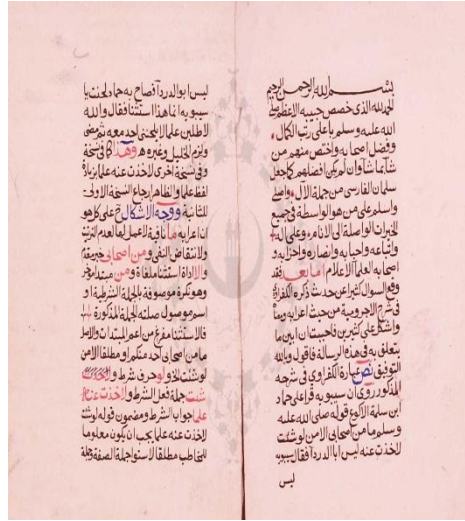 بسم الله الرحمن الرحيم
الحمد لله الذى خصص حبيبه الاعظم صلى
الله عليه وسلم باعلى رتب الكمال
وفضل اصحابه واختص منهم من
شاء بما شاء وان لم يكن افضلهم كما جعل
سلمان الفارسى من جملة الآل واصلى
واسلم على من هو الواسطة فى جميع
الخيرات الواصلة الى الانام وعلى اله
واتباعه واحبابه وانصاره واحزابه و
اصحابه العلماء الاعلام اما بعد فقد
وقع السوال كثيرا عن حديث ذكره الكفراوى
فى شرح الاجرومية من حيث اعرابه ومعناه
واشكل على كثيرين فاحببت ان ابين ما
يتعلق به فى هذه الرسالة فاقول وبالله
التوفيق نص عبارة الكفراوى فى شرحه
المذكور روى ان سيبويه قرأ على حماد
ابن سلمة الاكوع قوله صلى الله عليه
وسلم ما من اصحابى الا من لو شئت
لاخذت عنه ليس ابا الدرداء فقال سيبويه
ليس
ليس ابو الدرداء فصاح به حماد لحنت يا
سيبويه انما هذا استثنا فقال والله
لاطلبن علما لا يلحننى احد معه ثم مضى
ولزم الخليل وغيره وهذا كما فى نسخة
وفى نسخة اخرى لاخذت عنه علما بزيادة
لفظ علما والظاهر ارجاع النسخة الاولى
للثانية ووجه الاشكال على كل هو
ان اعرابه ما نافية لا عمل لها لعدم الترتيب
ولانتقاض النفى ومن اصحابى خبر مقدم
والا اداة استثنا ملغاة ومن مبتدا مؤخر
وهو نكرة موصوفة بالجملة الشرطية او
اسم موصول صلته الجملة المذكورة
فالاستثنا مفرغ من اعم المبتدآت والاصل
ما من اصحابى احد منكم او مطلقا الا من
لو شئت الخ ولو حرف شرط و
شئت جملة فعل الشرط ولاخذت عنه
علما جواب الشرط ومضمون قوله لو شئت
لاخذت عنه علما يجب ان يكون معلوما
للمخاطب مطلقا لاستوا جملة الصفة وجملة